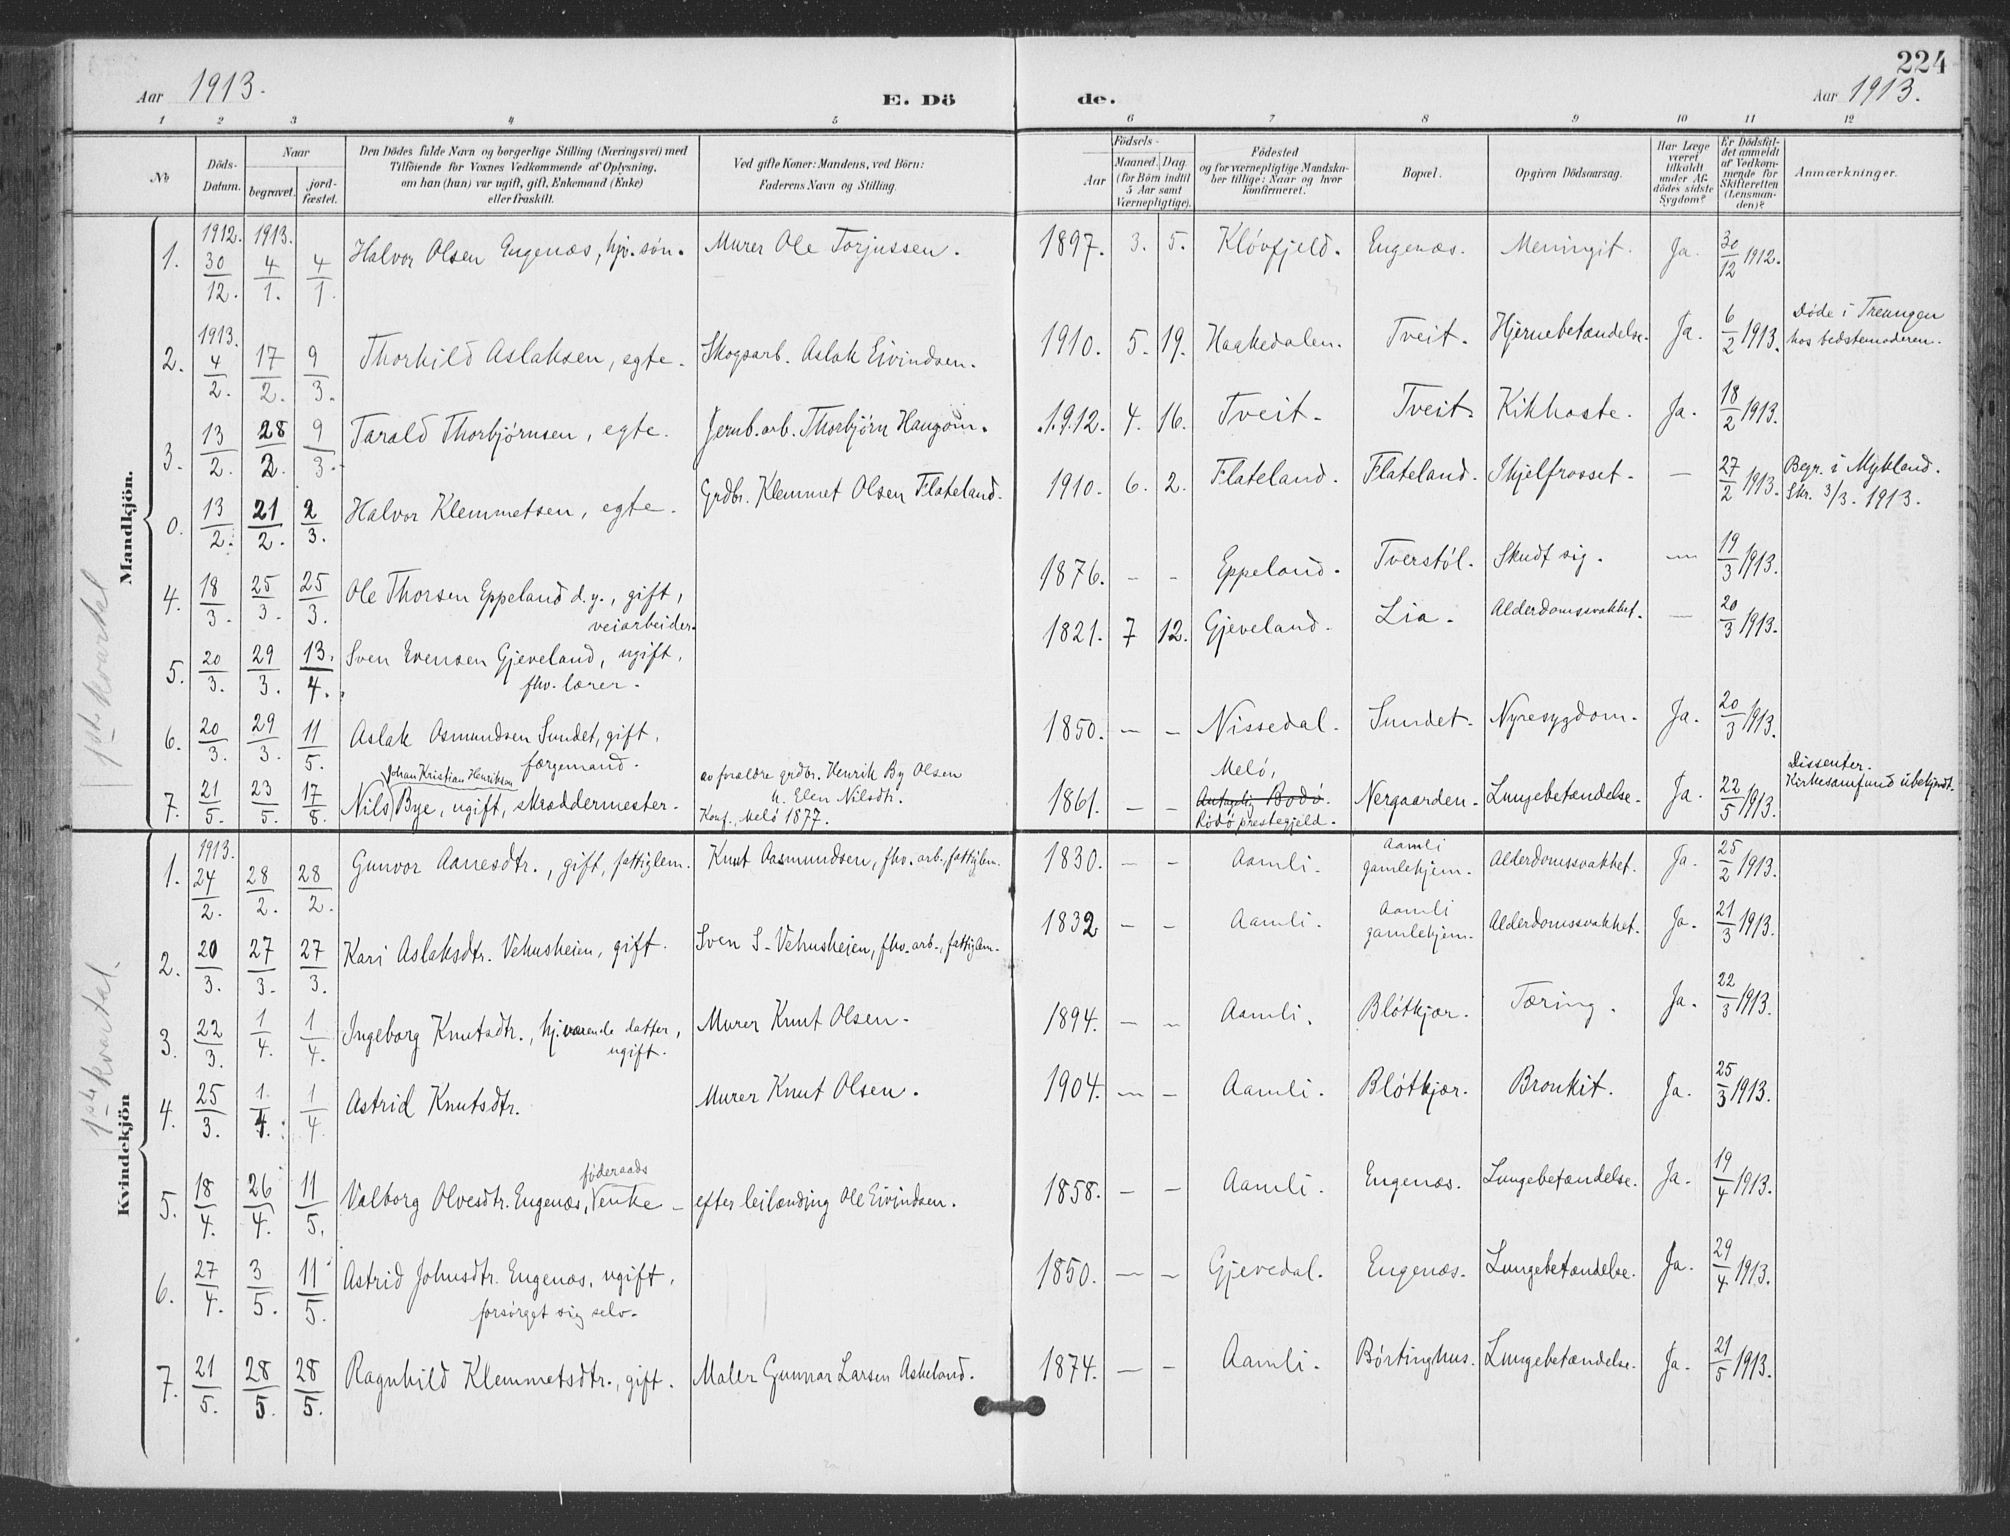 224
Aar 1913.
E. Dö
de.
Aar 1913.
1 2 3 4 5 6 7 8 9 10 11 12
№
Döds-Datum.
Naar
begravet.
jord-fæstet.
Den Dödes fulde Navn og borgerlige Stilling (Næringsvei) med
Tilföiende for Voxnes Vedkommende af Oplysning,
om han (hun) var ugift, gift, Enkemand (Enke)
eller fraskilt.
Ved gifte Koner: Mandens, ved Börn:
Faderens Navn og Stilling.
Födsels-
Aar
Maaned. Dag
(for Börn indtil
5 Aar samt
Værnepligtige).
Födested
og for værnepligtige Mandska-
ber tillige: Naar og hvor
konfirmeret.
Bopæl.
Opgiven Dödsaarsag.
Har Læge
været
tilkaldt
under Af-
dödes sidste
Sygdom?
Er Dödsfal-
det anmeldt
af Vedkom-
mende for
Skifteretten
(Lensman-
den)?
Anmærkninger.
Mandkjön.
1ste kvartal
1. 1912. 30/12. 1913. 4/1. 4/1 Halvor Olsen Engenæs, hjv. søn. Murer Ole Torjussen. 1897. 3. 5. Kløvfjeld. Engenæs. Meningit. Ja. 30/12 1912.
2. 1913. 4/2. 17/2. 9/3. Thorkild Aslaksen, egte. Skogsarb. Aslak Eivindsen. 1910. 5. 19. Haakedalen. Tveit. Hjernebetændelse. Ja. 6/2 1913. Døde i Treungen
hos bedstemoderen.
3. 13/2. 28/2. 9/3. Tarald Thorbjørnsen, egte. Jernb.arb. Thorbjørn Haugom. 1912. 4. 16. Tveit. Tveit. Kikhoste. Ja. 18/2 1913.
0. 13/2. 21/2. 2/3. Halvor Klemmetsen, egte. Grdbr. Klemmet Olsen Flateland. 1910. 6. 2. Flateland. Flateland. Skjelfrosset. — 27/2 1913. Begr. i Mykland.
Skr. 3/3. 1913.
4. 18/3. 25/3. 25/3. Ole Thorsen Eppeland d.y., gift,
veiarbeider. 1876. - - Eppeland. Tverstøl. Skudt sig. — 19/3 1913.
5. 20/3. 29/3. 13./4. Sven Evensen Gjeveland, ugift,
fhv. lærer. 1821. 7 12. Gjeveland. Lia. Alderdomssvakhet. — 20/3 1913.
6. 20/3. 29/3. 11/5. Aslak Asmundsen Sundet, gift,
færgemand. 1850. - - Nissedal. Sundet. Nyresygdom. Ja. 20/3 1913.
7. 21/5. 23/5. 17/8. Johan Kristian Henriksen
Nils Bye, ugift, skræddermester. av foraldre grdbr. Henrik By Olsen
u. Elen Nilsdtr.
Konf., Melö 1877. 1861. - - Melö,
Bodö.
Rödö prestegjeld. Nergaarden. Lungebetændelse. Ja. 22/5 1913. Dissenter.
Kirkesamfund ubekjendt.
Kvindekjön
1ste kvartal.
1. 1913. 24/2. 28/2. 28/2. Gunvor Aanesdtr., gift, fattiglem. Knut Aasmundsen, fhv. arb., fattiglem. 1830. - - Aamli. Aamli
gamlehjem. Alderdomssvakhet. Ja. 25/2 1913.
2. 20/3. 27/3. 27/3. Kari Aslaksdtr. Vehusheien, gift. Sven S. Vehusheien, fhv. arb., fattiglem. 1832 - - Aamli. Aamli
gamlehjem. Alderdomssvakhet. Ja. 21/3 1913.
3. 22/3. 1/4. 1/4. Ingeborg Knutsdtr., hj.værende datter,
ugift. Murer Knut Olsen. 1894. - - Aamli. Bløtkjær. Tæring. Ja. 22/3 1913.
4. 25/3. 1./4. 1/4. Astrid Knutsdtr. Murer Knut Olsen. 1904. - - Aamli. Bløtkjær. Bronkit. Ja. 25/3 1913.
5. 18/4. 26/4. 11/5. Valborg Olvesdtr. Engenæs, føderaads
enke - efter leilænding Ole Eivindsen. 1858. - - Aamli. Engenæs. Lungebetændelse. Ja. 19/4 1913.
6. 27/4. 3/5. 11/5. Astrid Johnsdtr. Engenæs, ugift,
forsørget sig selv. 1850. - - Gjevedal. Engenæs. Lungebetændelse. Ja. 29/4 1913.
7. 21/5. 28/5. 28/5. Ragnhild Klemmetsdtr., gift. Maler Gunnar Larsen Askeland. 1874. - - Aamli. Børtinghus. Lungebetændelse. Ja. 21/5 1913.